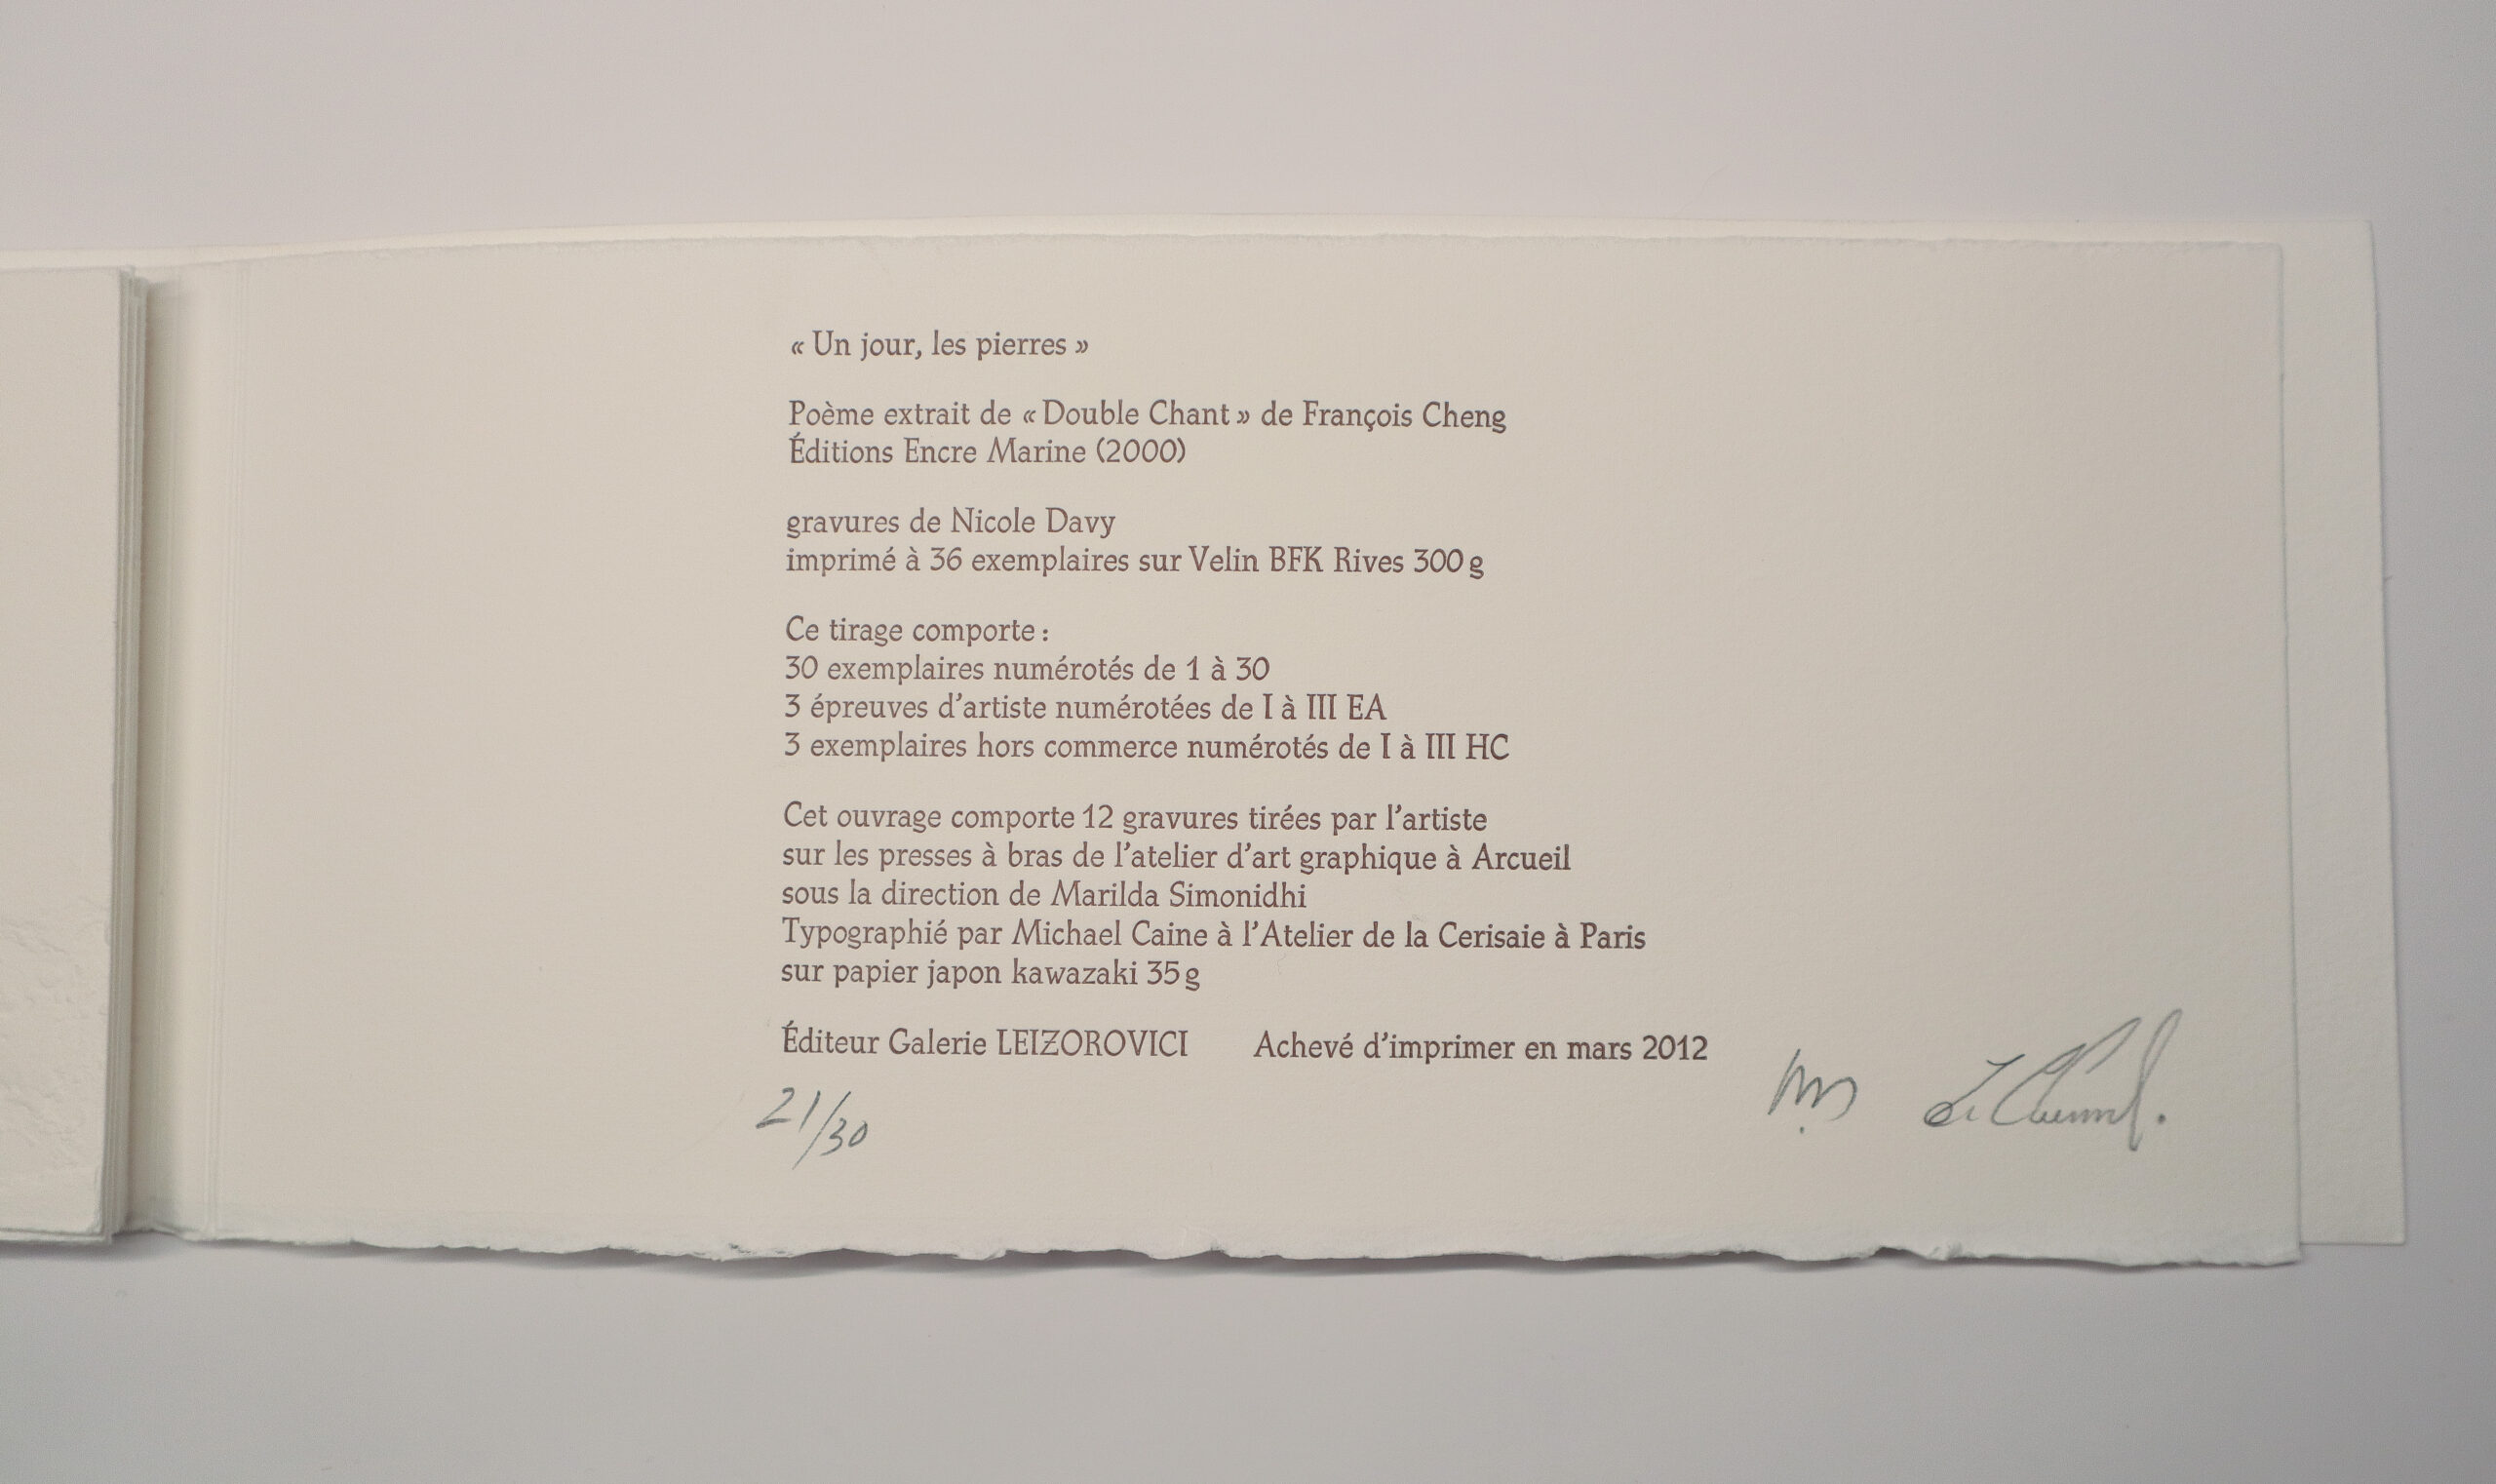 « Un jour, les pierres »
Poème extrait de « Double Chant » de François Cheng
Éditions Encre Marine (2000)
gravures de Nicole Davy
imprimé à 36 exemplaires sur Velin BFK Rives 300 g
Ce tirage comporte :
30 exemplaires numérotés de 1 à 30
3 épreuves d’artiste numérotées de I à III EA
3 exemplaires hors commerce numérotés de I à III HC
Cet ouvrage comporte 12 gravures tirées par l’artiste
sur les presses à bras de l’atelier d’art graphique à Arcueil
sous la direction de Marilda Simonidhi
Typographié par Michael Caine à l’Atelier de la Cerisaie à Paris
sur papier japon kawazaki 35 g
Éditeur Galerie LEIZOROVICI Achevé d’imprimer en mars 2012
21/30